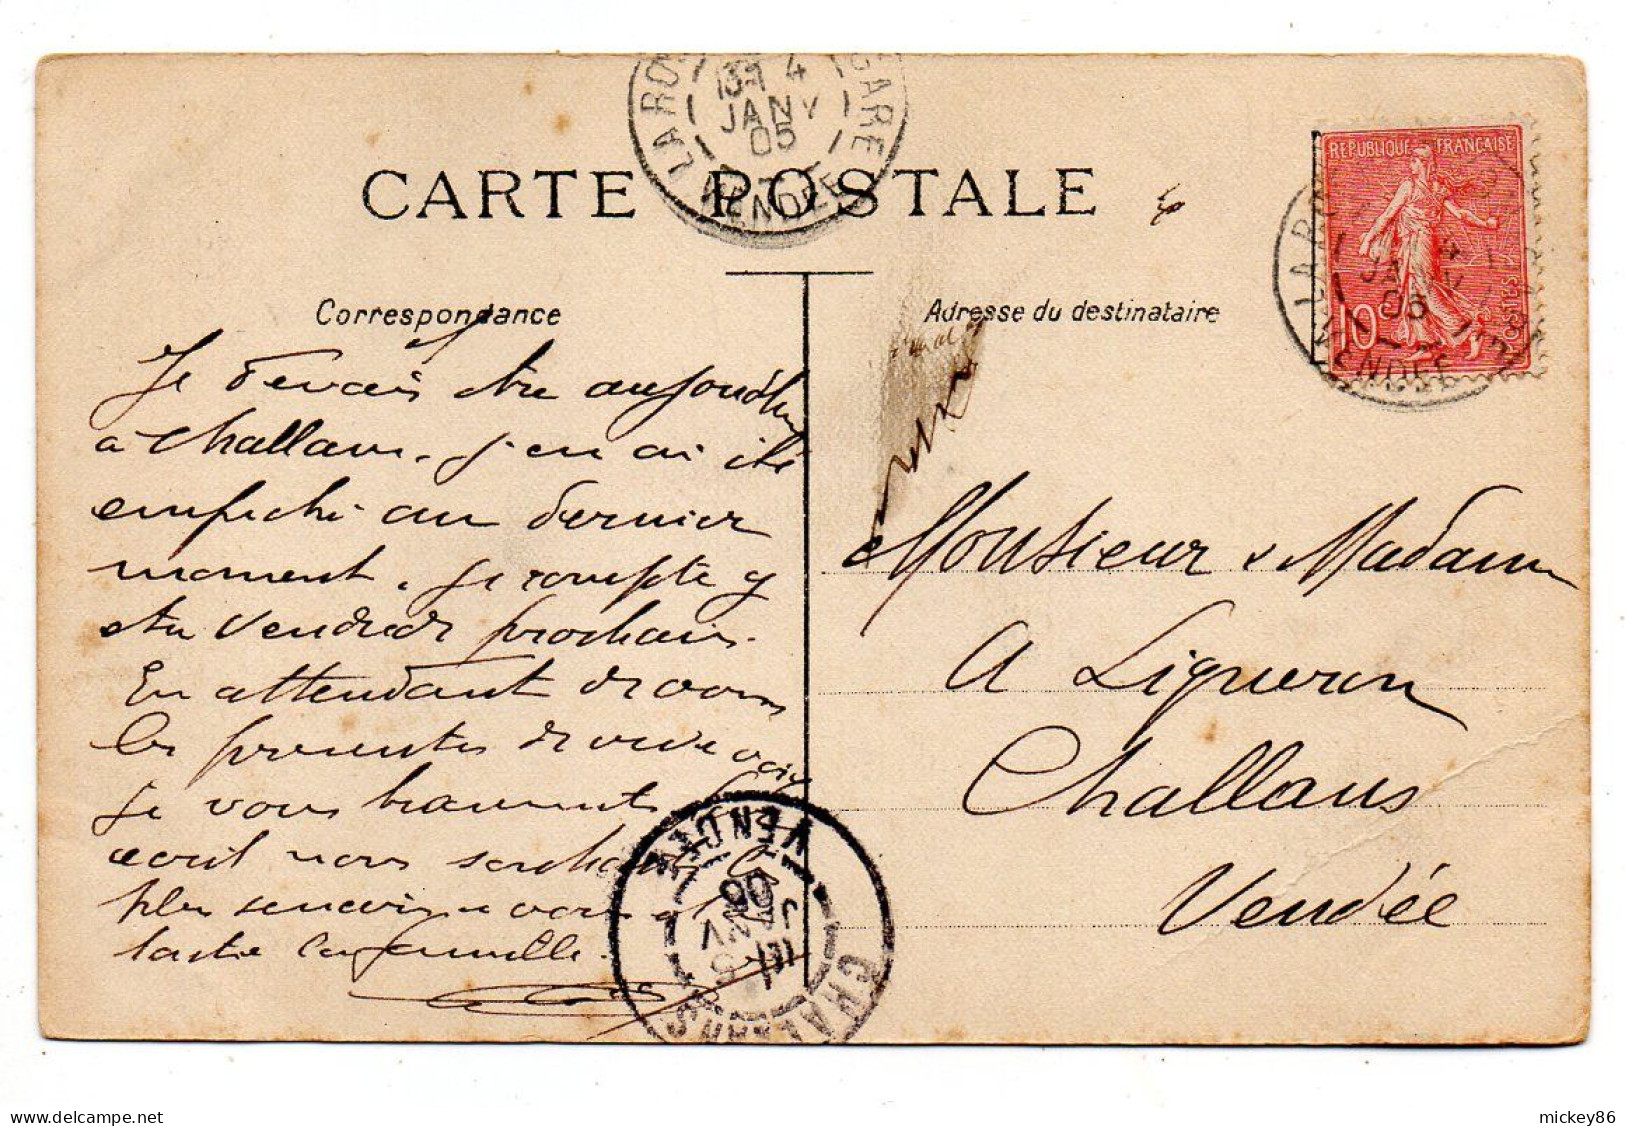 CARTE POSTALE
LA RO GARE
4
JANV
05
VENDÉE
REPUBLIQUE FRANÇAISE
10
POSTES
LA RO
JANV
05
VENDÉE
Correspondance
Je devais être aujourd'hui
a Challans. j'en ai été
empêché au dernier
moment. Je compte y
être Vendredi prochain.
En attendant de vous
les présenter de vive voix
Je vous transmets
avril nous souhaits
plus sincères a vous et
toute la famille.
Adresse du destinataire
Monsieur & Madame
A Ligneron
Challans
Vendée
CHALLANS
5
JANV
05
VENDÉE
delcampe.net
mickey86